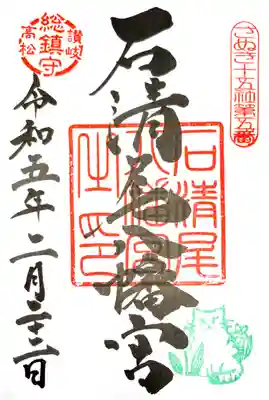 さぬき十五社第五番
石清尾八幡宮
石清尾
八幡宮
之印
讃岐
総鎮守
高松
令和五年二月二十二日